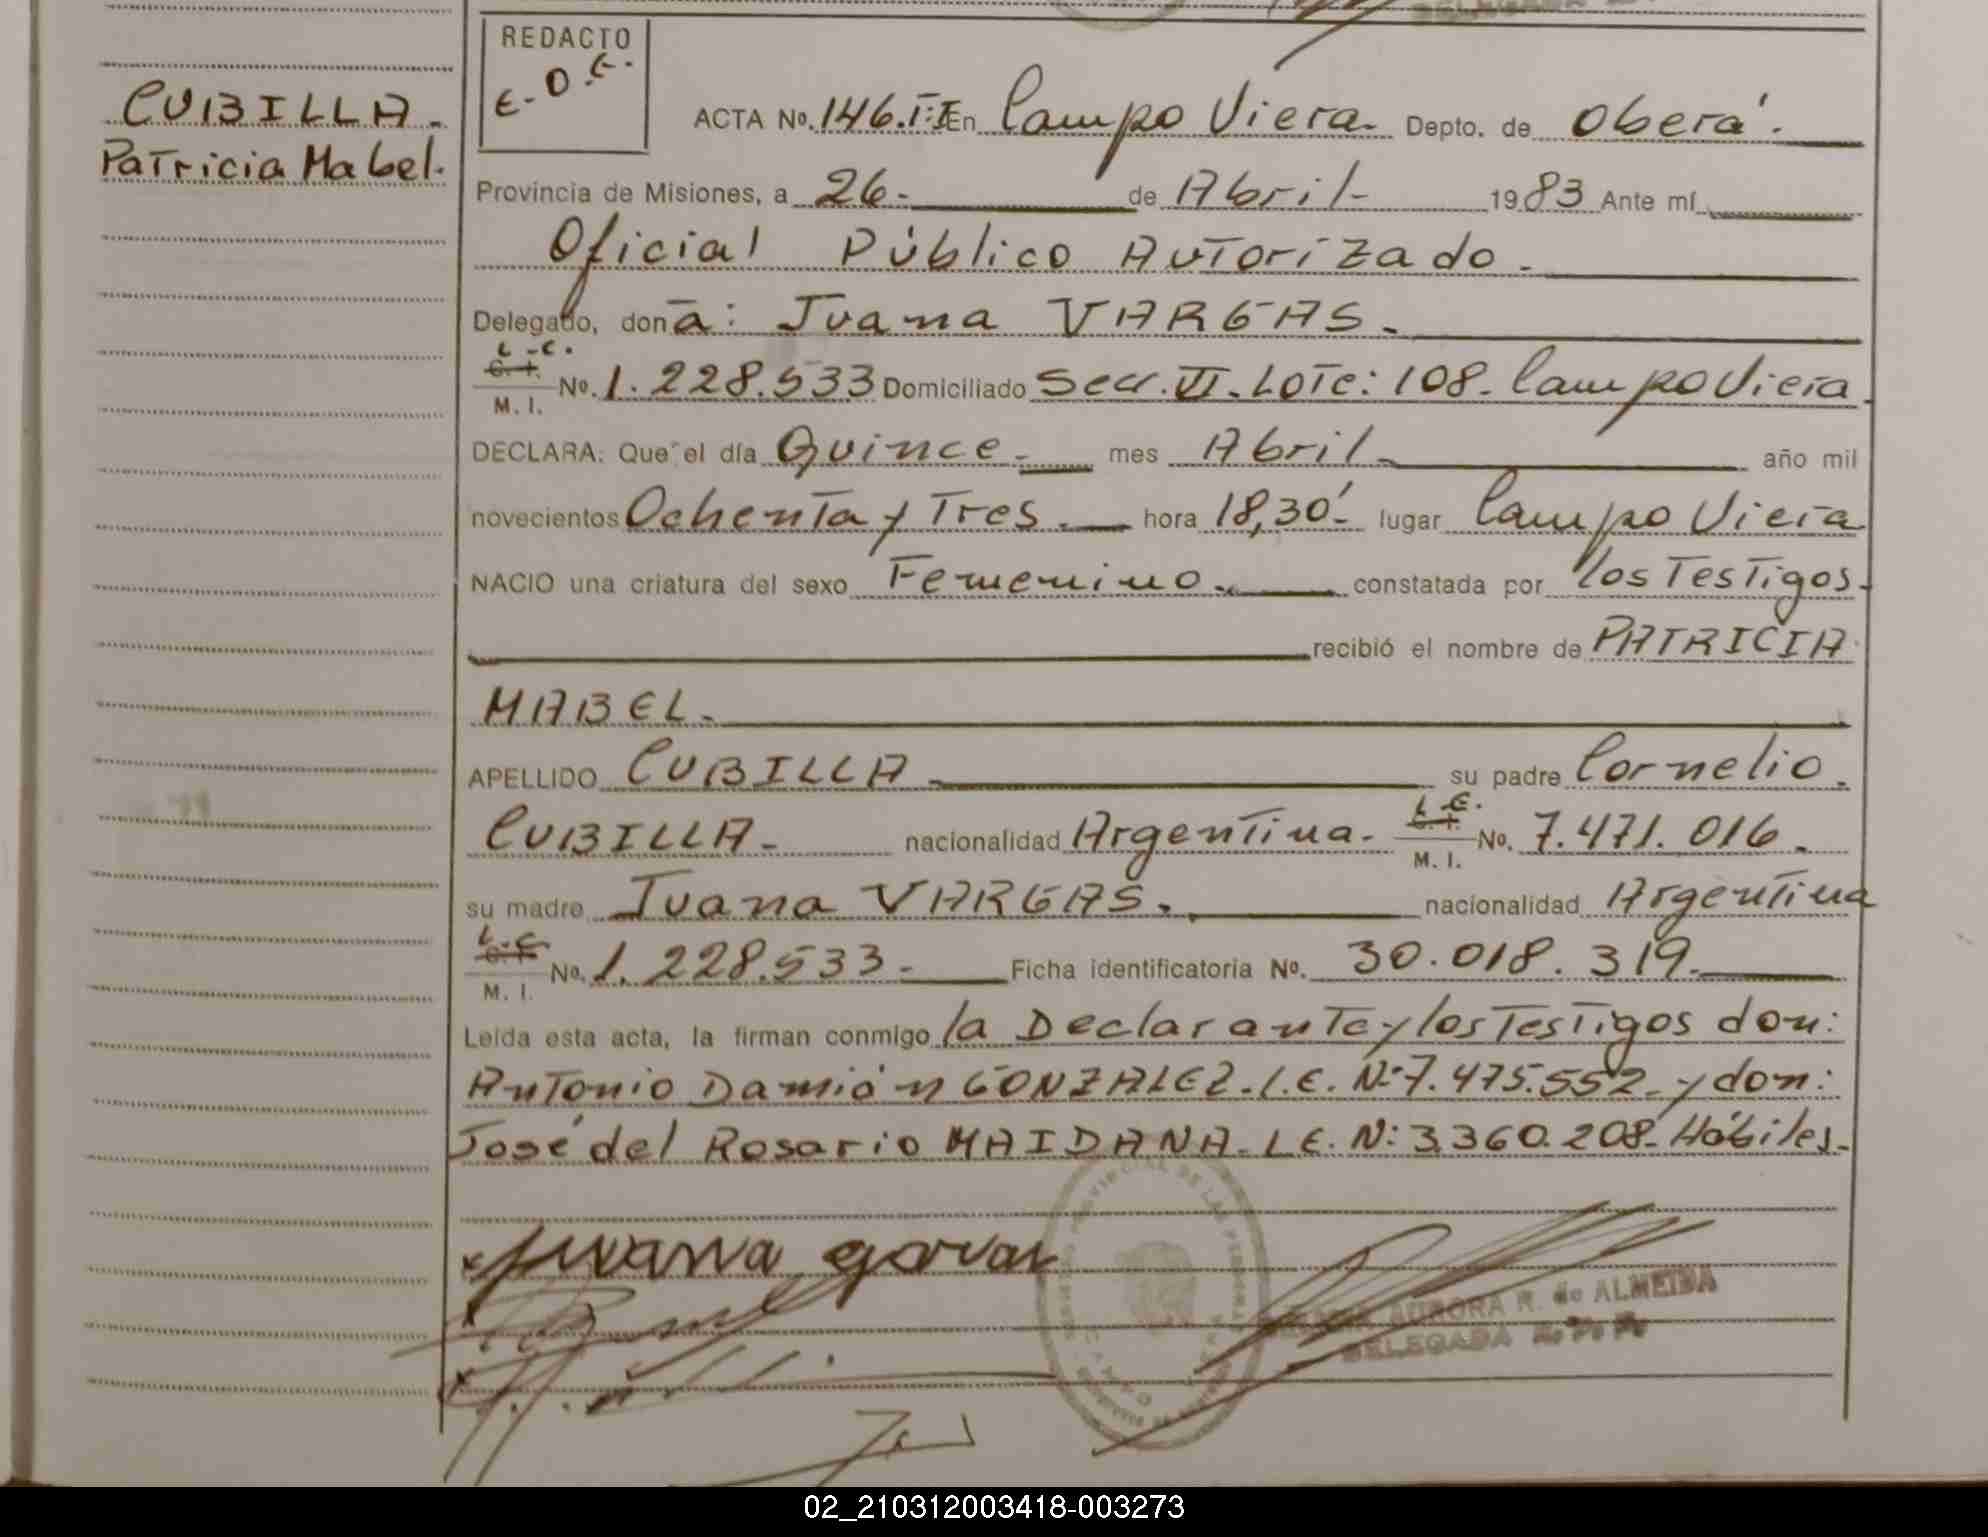 REDACTO
E.D.E.
CUBILLA.
Patricia Mabel.
ACTA No. 146.T:I En Campo Viera. Depto. de Oberá.
Provincia de Misiones, a 26. de Abril 1983 Ante mí
Oficial Público Autorizado.
Delegado, don a: Juana VARGAS.
L.C.
C. I. M. I. No. 1.228.533 Domiciliado Secc. VI. Lote: 108. Campo Viera.
DECLARA: Que el día Quince. mes Abril año mil
novecientos Ochenta y Tres. hora 18,30' lugar Campo Viera
NACIO una criatura del sexo Femenino. constatada por los Testigos.
recibió el nombre de PATRICIA
MABEL.
APELLIDO CUBILLA su padre Cornelio.
CUBILLA. nacionalidad Argentina. L.E. C. I. M. I. No. 7.471.016.
su madre Juana VARGAS. nacionalidad Argentina
L.C. C. I. M. I. No. 1.228.533. Ficha identificatoria No. 30.018.319.
Leída esta acta, la firman conmigo la Declarante y los Testigos don:
Antonio Damián GONZALEZ. L.E. Nº 7.475.552. y don:
José del Rosario MAIDANA. L.E. N: 3.360.208. Hábiles.
Juana
AURORA R. de ALMEIDA
DELEGADA R. P. P.
02_210312003418-003273